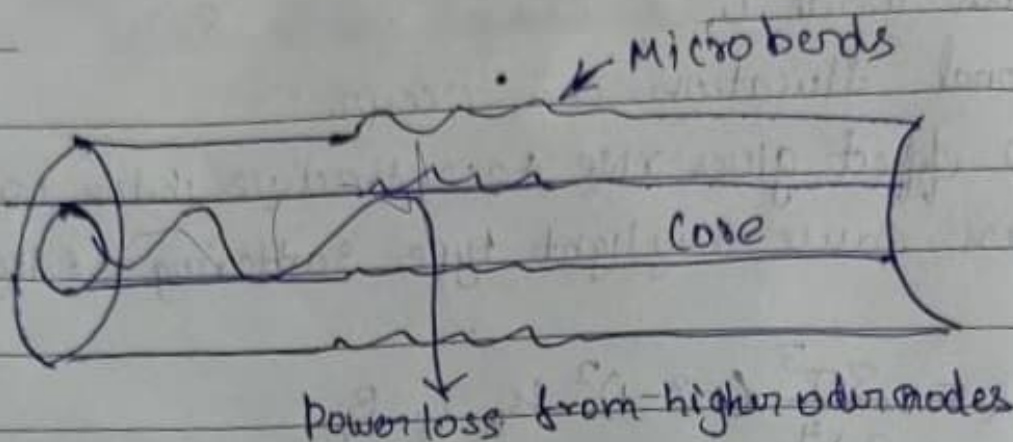 Microbends
Core
Power loss from higher oder modes